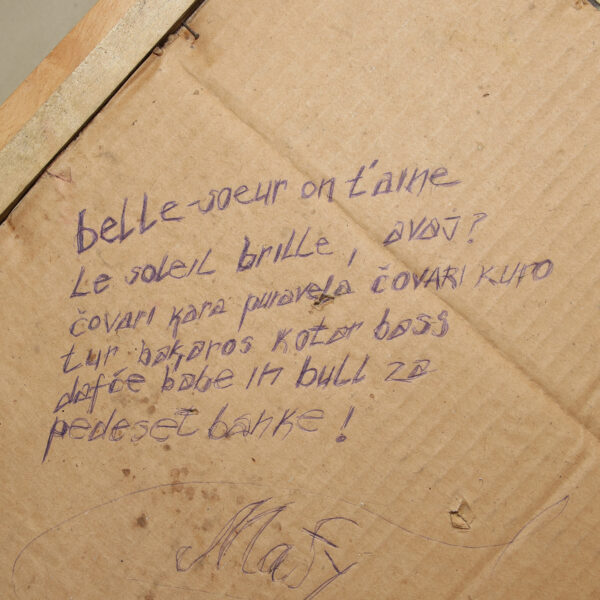 belle-soeur on t'aine
Le soleil brille, avaj?
čovari kara puravela čovari kupo
tur bakaros kotar bass
dafče babe in bull za
pedeset banke!
Mafy